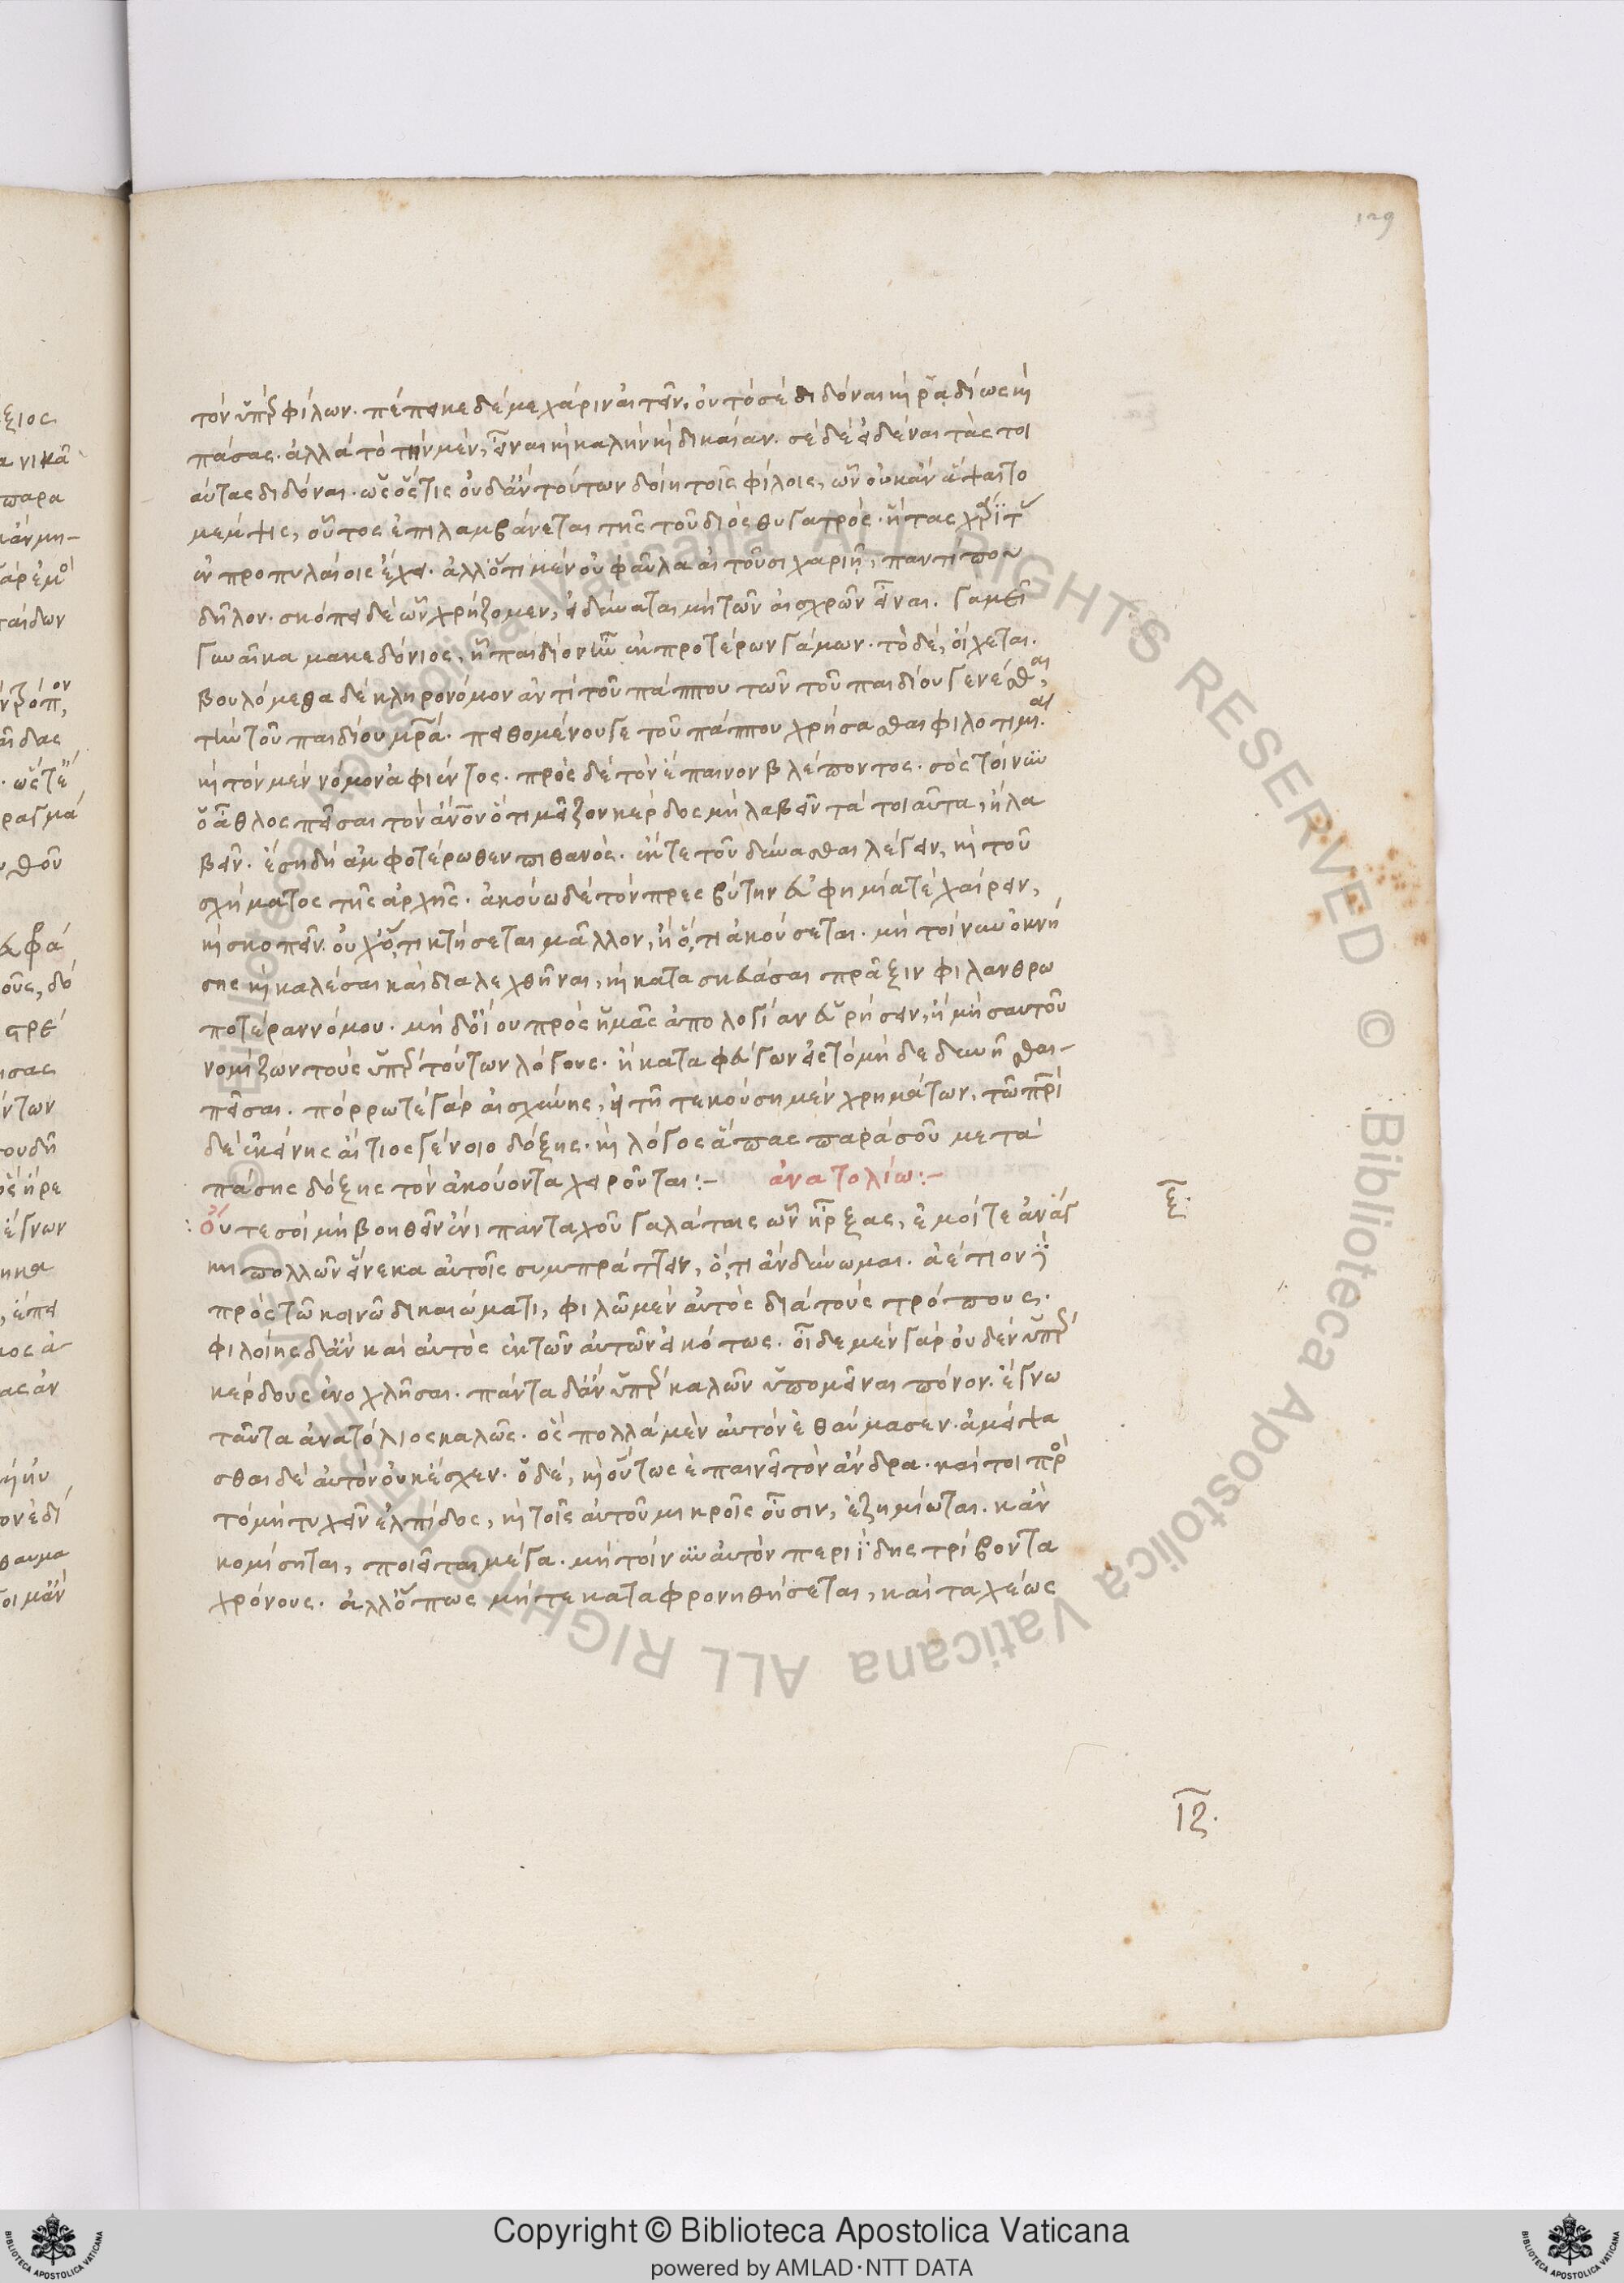 129
τὸν ὑπὲρ φίλων. πέπεικε δέ με χάριν αἰτεῖν, οὐ τὸ σὲ διδόναι καὶ ῥᾳδίως καὶ
πάσας. ἀλλὰ τὸ τὴν μὲν, εἶναι καὶ καλὴν καὶ δικαίαν. σὲ δὲ εἰδέναι τὰς τοι
αύτας διδόναι. ὡς ὅστις οὐδὰν τούτων δοίη τοῖς φίλοις, ὧν οὐκ ἂν ἅψαιτο
μέμψις, οὗτος ἐπιλαμβάνεται τῆς τοῦ διὸς θυγατρὸς. ἣ τὰς
ἐν προπυλαίοις ἔχει. ἀλλ' ὅτι μὲν οὐ φαῦλα αἰτοῦσι χαριεῖ, παντί που
δῆλον. σκόπει δὲ ὧν χρήζομεν, εἰ δύναται μὴ τῶν αἰσχρῶν εἶναι. γαμεῖ
γυναῖκα μακεδόνιος, ᾗ παιδίον ἦν ἐκ προτέρων γάμων. τὸ δὲ, οἴχεται.
βουλόμεθα δὲ κληρονόμον ἀντὶ τοῦ πάππου τῶν τοῦ παιδίου γενέσθαι,
τὴν τοῦ παιδίου μητέρα. πειθομένου γε τοῦ πάππου χρήσασθαι φιλοτιμίαι.
καὶ τὸν μὲν νόμον ἀφιέντος. πρὸς δὲ τὸν ἔπαινον βλέποντος. σὸς τοίνυν
ὁ ἆθλος πεῖσαι τὸν ἄνθρωπον ὅτι μεῖζον κέρδος μὴ λαβεῖν τὰ τοιαῦτα, ἢ λα
βεῖν. ἔσῃ δὴ ἀμφοτέρωθεν πιθανὸς. ἔκ τε τοῦ δύνασθαι λέγειν, καὶ τοῦ
σχήματος τῆς ἀρχῆς. ἀκούω δὲ τὸν πρεσβύτην εὐφημίᾳ τὲ χαίρειν,
καὶ σκοπεῖν. οὐχ ὅ, τι κτήσεται μᾶλλον, ἢ ὅ, τι ἀκούσεται. μὴ τοίνυν ὀκνή
σῃς καὶ καλέσαι καὶ διαλεχθῆναι, καὶ κατασκευάσαι πρᾶξιν φιλανθρω
ποτέραν νόμου. μὴ δ' οἴου πρὸς ἡμᾶς ἀπολογίαν εὑρήσειν, ἢ μὴ σαυτοῦ
νομίζων τοὺς ὑπὲρ τούτων λόγους. ἢ καταφεύγων εἰς τὸ μὴ δεδυνῆσθαι-
πεῖσαι. πόρρω τὲ γὰρ αἰσχύνης, εἰ τῇ τεκούσῃ μὲν χρημάτων, τῷ πατρὶ
δὲ ἐκείνης αἴτιος γένοιο δόξης. καὶ λόγος ἅπας παρὰ σοῦ μετὰ
πάσης δόξης τὸν ἀκούοντα χειροῦται:- ἀνατολίω:-
Οὔτε σοὶ μὴ βοηθεῖν ἔνι πανταχοῦ γαλάταις ὧν ἦρξας, ἐμοί τε ἀνάγ
κη πολλῶν εἵνεκα αὐτοῖς συμπράττειν, ὅ, τι ἂν δύνωμαι. ἀέτιον
πρὸς τῶ κοινῶ δικαιώματι, φιλῶ μὲν αὐτὸς διὰ τοὺς τρόπους.
φιλοίης δ' ἂν καὶ αὐτὸς ἐκ τῶν αὐτῶν εἰκότως. οἶδε μὲν γὰρ οὐδὲν ὑπὲρ
κέρδους ἐνοχλῆσαι. πάντα δ' ἂν ὑπὲρ καλῶν ὑπομεῖναι πόνον. ἔγνω
ταῦτα ἀνατόλιος καλῶς. ὃς πολλὰ μὲν αὐτὸν ἐθαύμασεν. ἀμείψα
σθαι δὲ αὐτὸν οὐκ ἔσχεν. ὁ δὲ, καὶ οὕτως ἐπαινεῖ τὸν ἄνδρα. καί τοι πρὸς
τὸ μὴ τυχεῖν ἐλπίδος, καὶ τοῖς αὐτοῦ μικροῖς οὖσιν, ἐζημίωται. κἂν
κομίσηται, ποιεῖται μέγα. μὴ τοίνυν αὐτὸν περιίδῃς τρίβοντα
χρόνους. ἀλλ' ὅπως μήτε καταφρονηθήσεται, καὶ ταχέως
ξ.
ιζ.
Copyright © Biblioteca Apostolica Vaticana
powered by AMLAD·NTT DATA